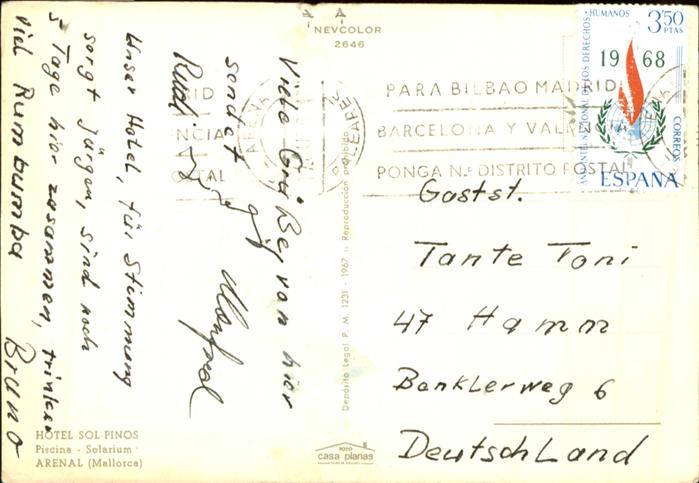 NEVCOLOR
2646
Viele Grüße von hier
sendet
Rudi
Manfred
Unser Hotel, für Stimmung
sorgt Jürgen, sind noch
5 Tage hier zusammen, trinken
viel Rumbumba
Bruno
HOTEL SOL-PINOS
Piscina - Solarium
ARENAL (Mallorca)
Depósito Legal P. M. 1231 - 1967 :: Reproducción prohibida
FOTO
casa planas
PARA BILBAO MADRID
BARCELONA Y VALE
PONGA N.º DISTRITO POSTAL
RID
NCIA
OSTAL
ARENA
BALEARES
HUMANOS
AÑO INTERNACIONAL DE LOS DERECHOS
3'50
PTAS
1968
CORREOS
ESPAÑA
Gastst.
Tante Toni
47 Hamm
Banklerweg 6
Deutschland